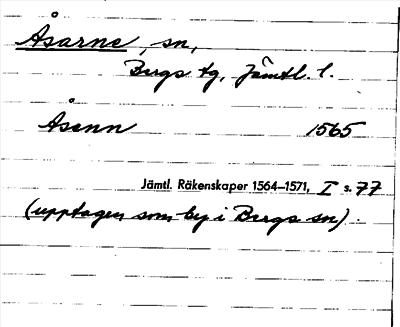 Åsarne, sn,
Bergs tg, Jämtl. l.
Åsenn 1565
Jämtl. Räkenskaper 1564–1571, I s. 77
(upptagen som by i Bergs sn).